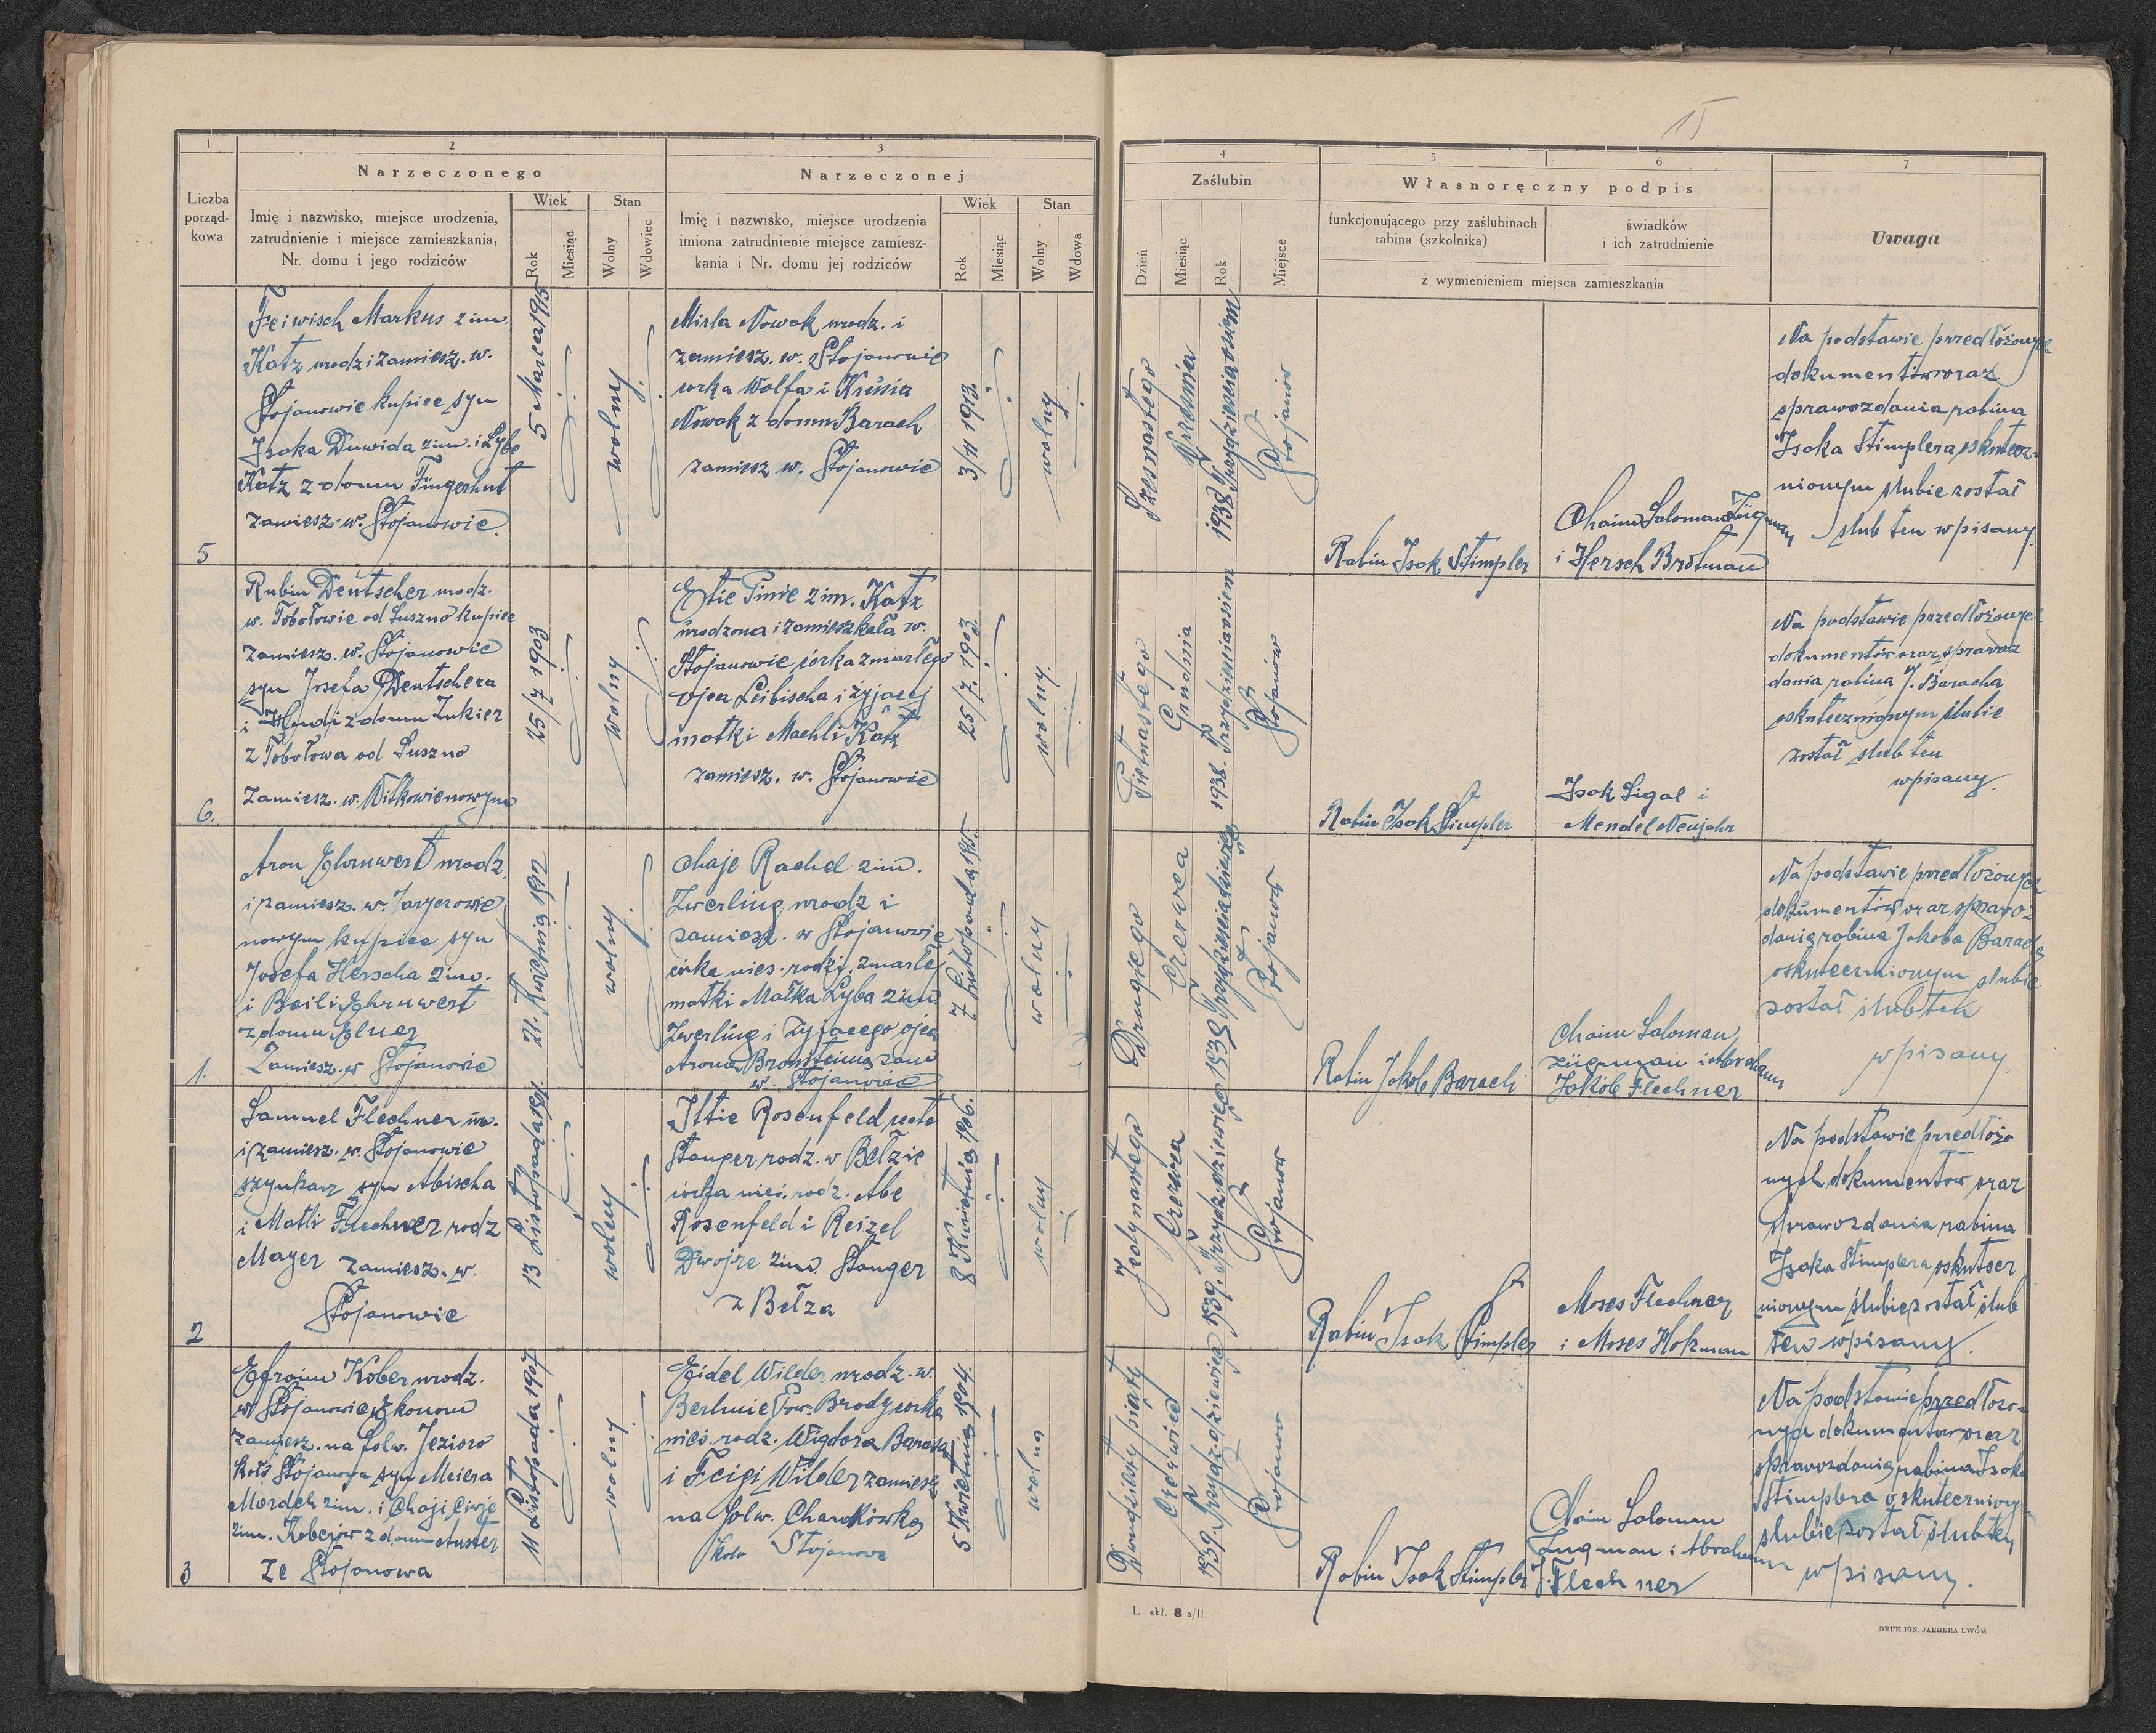 15
1
2
3
Liczba
porząd-
kowa
Narzeczonego
Narzeczonej
Imię i nazwisko, miejsce urodzenia,
zatrudnienie i miejsce zamieszkania,
Nr. domu i jego rodziców
Wiek
Rok
Miesiąc
Stan
Wolny
Wdowiec
Imię i nazwisko, miejsce urodzenia
imiona zatrudnienie miejsce zamiesz-
kania i Nr. domu jej rodziców
Wiek
Rok
Miesiąc
Stan
Wolny
Wdowa
4
5
6
7
Zaślubin
Dzień
Miesiąc
Rok
Miejsce
Własnoręczny podpis
funkcjonującego przy zaślubinach
rabina (szkolnika)
świadków
i ich zatrudnienie
z wymienieniem miejsca zamieszkania
Uwaga
5
Feiwisch Markus 2 im.
Katz urodz i zamiesz. w.
Stojanowie kupiec syn
Isaka Duwida 2 im. i Lybe
Katz z domu Fingerhut
zamiesz. w. Stojanowie.
5 Marca 1915
wolny
Mirla Nowak urodz. i
zamiesz. w. Stojanowie
corka Wolfa i Krusia
Nowak z domu Barach
zamiesz w. Stojanowie
3/11 1913
wolny
Szesnastego
Września
1938 Trzydziesiaosim
Stojanow
Rabin Isak Stimpler
Chaim Saloman Zügman
i Hersch Brotman
Na podstawie przedłożonych
dokumentów oraz
sprawozdania rabina
Isaka Stimplera, skutecz-
nionym slubie został
slub ten wpisany.
6.
Rubin Deutscher urodz.
w. Tobołowie od Łuszno kupiec
zamiesz. w. Stojanowie
syn Josefa Deutschera
i Hendi z domu Zukier
z Tobołowa od Łuszno
zamiesz. w. Witkowienowym
25/7 1903
wolny
Etie Pinie 2 im. Katz
urodzona i zamieszkała w.
Stojanowie córka zmarłego
ojca Leibischa i żyjącej
matki Machli Katz
zamiesz. w. Stojanowie
25/7. 1903.
wolny.
Pietnastego
Grudnia
1938. Trzydziesiaosiem
Stojanów
Rabin Isak Stimpler
Isak Sigal i
Mendel Neujahr
Na podstawie przedłożonych
dokumentów oraz sprawoz
dania rabina J. Baracha
oskutecznionym slubie
został slub ten
wpisany.
1.
Aron Ehruwert urodz.
i zamiesz. w. Jaryczowie
nowym kupiec syn
Josefa Herscha 2 im.
i Beili Ehruwert
z domu Elner
Zamiesz. w Stojanowie
21. Kwietnia 1912
wolny
Chaje Rachel 2 im.
Zwerling urodz i
zamiesz. w Stojanowie
córka nieś. rodzi. zmarłej
matki Małka Lyba 2 im
Zwerling i Żyjącego ojca
Arona Bronsteina zam
w. Stojanowie
7 Listopada 1915.
wolny
Drugiego
Czerwca
1939 Trzydzieścidziewięć
Stojanow
Rabin Jakob Barach
Chaim Saloman
Zügman i Abraham
Jakob Flechner
Na podstawie przedłożonych
dokumentów oraz sprawoz-
dania rabina Jakoba Baracha
oskutecznionym slubie
został slub ten
wpisany
2
Samuel Flechner ur.
i zamiesz. w. Stojanowie
szynkarz syn Abischa
i Matli Flechner rodz
Mayer zamiesz. w.
Stojanowie
13 Listopada 1911.
wolny
Ittie Rosenfeld recte
Stanger rodz. w Bełzie
córka nieś. rodz. Abe
Rosenfeld i Reizel
Dwojre 2 im. Stanger
z Bełza
8 Kwietnia 1906.
wolny
Jedynastego
Czerwca
1939. Trzydz. dziewięć
Stojanow
Rabin Isak Stimpler
Moses Flechner
i Moses Hokman
Na podstawie przedłożo
nych dokumentow oraz
sprawozdania rabina
Isaka Stimplera, oskutecz
nionym slubie został slub
ten wpisany.
3
Efroim Kober urodz.
w Stojanowie Ekonom
zamiesz. na folw. Jezioro
koło Stojanowa syn Meiera
Mordch 2 im. i Chaji Ciwje
2 im. Koberów z domu Auster
ze Stojanowa
11 Listopada 1907
wolny
Eidel Wilder urodz. w.
Berlinie Pow. Brody corka
nieś. rodz. Wigdora Barasa
i Feigi Wilder zamiesz
na folw. Chardkówka
koło Stojanowa
5 Kwietnia 1904.
wolna
Dwadziesty piąty
Czerwiec
1939. Trzydz. dziewięć
Stojanow
Rabin Isak Stimpler
Chaim Saloman
Zugman i Abraham
J. Flechner
Na podstawie przedłożo-
nych dokumentow oraz
sprawozdania rabina Isaka
Stimplera o skuteczniony
slubie został slub ten
wpisany.
L. skł. 8 a/II.
DRUK IGN. JAEGERA LWÓW